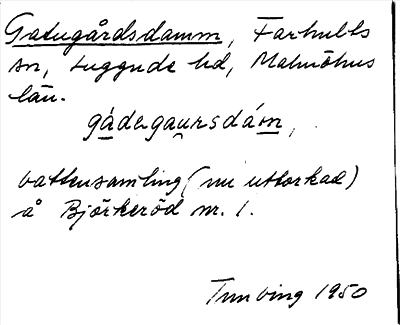 Gatugårdsdamm, Farhults
sn, Luggude hd, Malmöhus
län.
gádagau̯rsdám,
vattensamling (nu uttorkad)
å Björkeröd nr. 1.
Tunving 1950